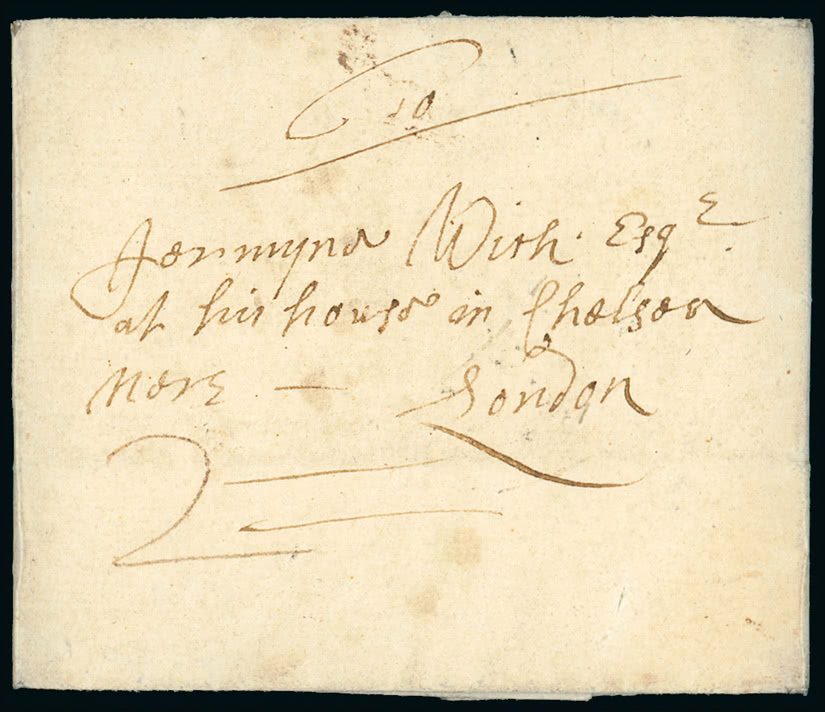 To
Jermyne Wich Esqe
at his house in Chelsea
nere — London
2